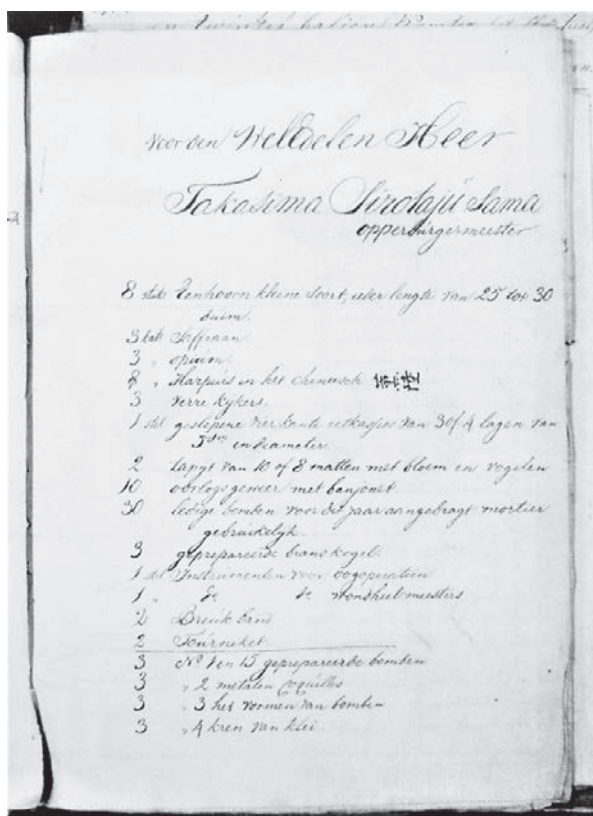 voor den WelEdelen Heer
Takasima Sirotaju Sama
opperburgermeester
8 stuks Eenhoorn kleine soort, ieder lengte van 25 tot 30
duim.
3 kat Saffraan
3 " opium.
8 " Harpuis in het chineesch
3 verre kykers.
1 stel geslepene vierkante eetkasjes van 3 of 4 lagen van
en diameter.
2 tapyt van 10 of 8 matten met bloem en vogelen
10 oorlogsgeweer met banjonet
30 ledige bomben voor dit jaar aangebragt mortier
gebruikelyk.
3 geprepareerde brandkogel.
1 stel Instrumenten voor oogoperatien
1 " do do wondheelmeesters
2 Breuk band
2 Tourniket.
3 No 1 en 15 geprepareerde bomben
3 " 2 metalen Coquilles
3 " 3 het vormen van bomben
3 " 4 kren van klei.